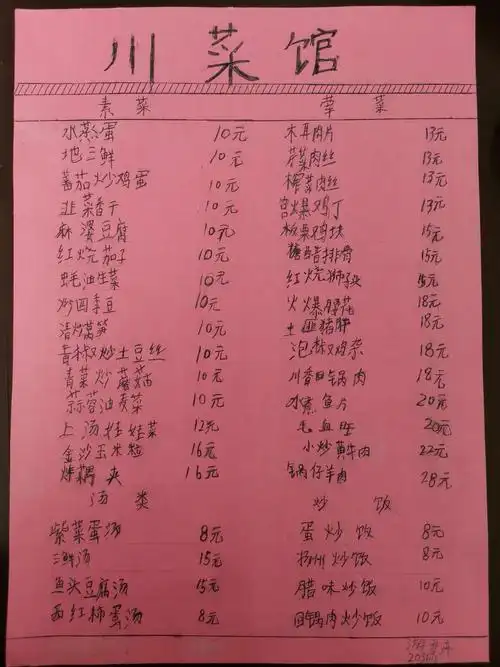 川菜馆
素菜
水蒸蛋 10元
地三鲜 10元
蕃茄炒鸡蛋 10元
韭菜香干 10元
麻婆豆腐 10元
红烧茄子 10元
蚝油生菜 10元
炒四季豆 10元
清炒莴笋 10元
青椒炒土豆丝 10元
青菜炒蘑菇 10元
蒜蓉油麦菜 10元
上汤娃娃菜 12元
金沙玉米粒 16元
炸藕夹 16元
汤类
紫菜蛋汤 8元
三鲜汤 15元
鱼头豆腐汤 15元
西红柿蛋汤 8元
荤菜
木耳肉片 13元
芹菜肉丝 13元
榨菜肉丝 13元
宫爆鸡丁 13元
板栗鸡块 15元
糖醋排骨 15元
红烧狮子头 15元
火爆腰花 18元
土豆猪脚 18元
泡椒鸡杂 18元
川香回锅肉 18元
水煮鱼片 20元
毛血旺 20元
小炒黄牛肉 22元
锅仔羊肉 28元
炒饭
蛋炒饭 8元
扬州炒饭 8元
腊味炒饭 10元
回锅肉炒饭 10元